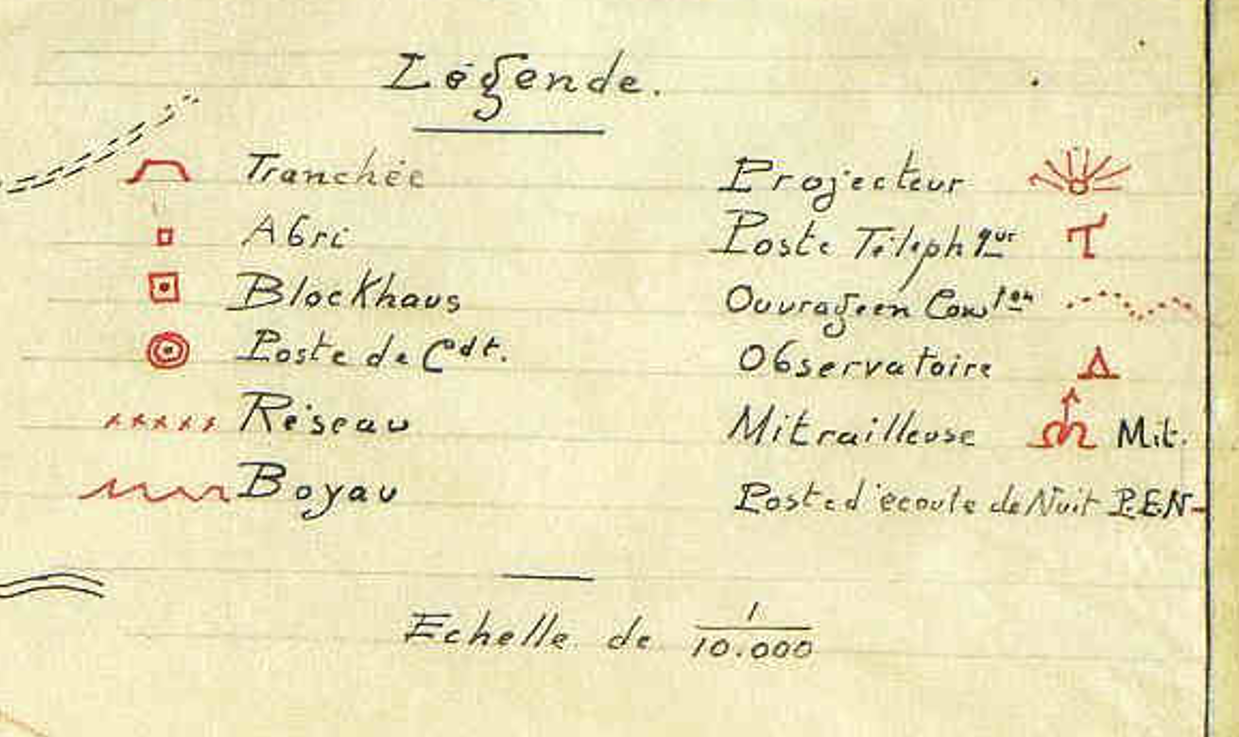 Légende.
Tranchée
Abri
Blockhaus
Poste de Cdt.
Réseau
Boyau
Projecteur
Poste Téléphque T
Ouvrage en Conston
Observatoire
Mitrailleuse Mit.
Poste d'écoute de Nuit P.E.N
Echelle de 1/10.000